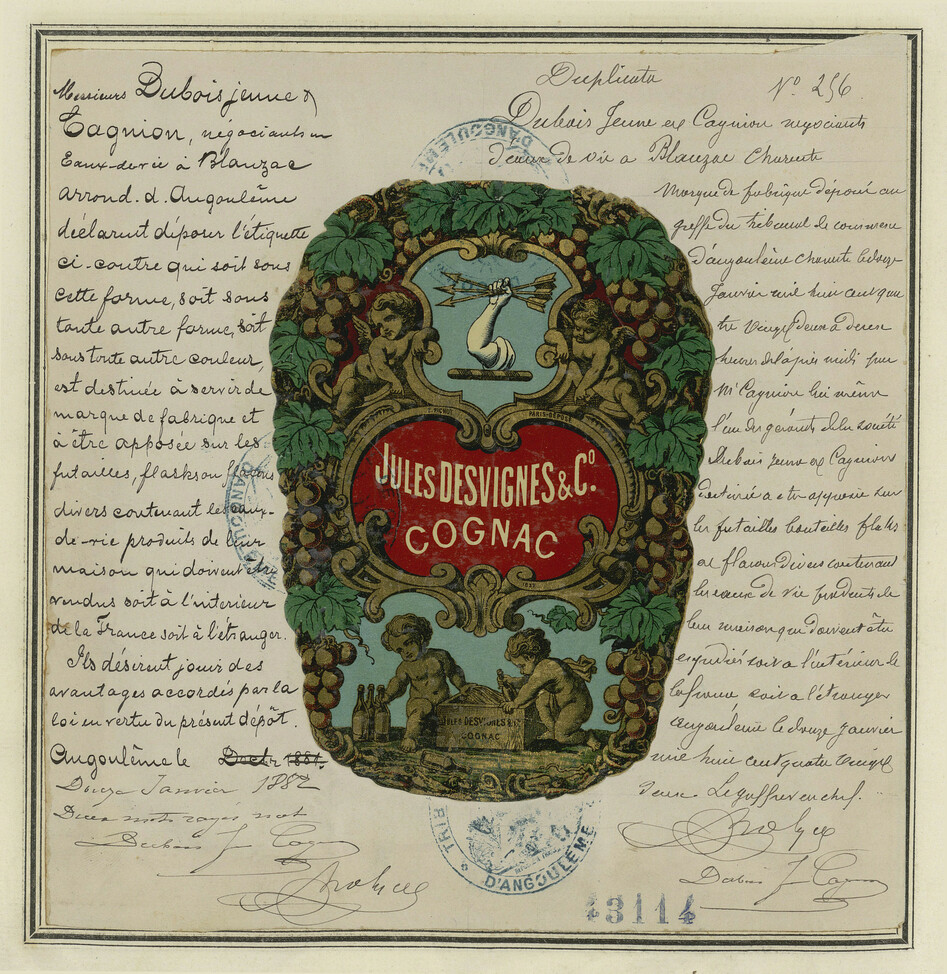 Messieurs Dubois jeune &
Cagnion, négociants en
Eaux-de-vie à Blanzac
arrond. d. Angoulême
déclarent déposer l'étiquette
ci-contre qui soit sous
cette forme, soit sous
toute autre forme, soit
sous toute autre couleur,
est destinée à servir de
marque de fabrique et
à être apposée sur les
futailles, flasks ou flacons
divers contenant les eaux-
de-vie produits de leur
maison qui doivent être
vendus soit à l'intérieur
de la France soit à l'étranger.
Ils désirent jouir des
avantages accordés par la
loi en vertu du présent dépôt.
Angoulême le
Douze Janvier 1882
Deux mots rayés nuls
Dubois Jne Cagnion
D'ANGOULÊME
T. PICHOT
PARIS-DÉPOSÉ
JULES DESVIGNES & Cº.
COGNAC
JULES DESVIGNES & Cº
COGNAC
TRIB
D'ANGOULÊME
Duplicata
Nº 256
Dubois Jeune et Cagnion negociants
d'eaux de vie a Blanzac Charente
Marque de fabrique déposée au
greffe du tribunal de commerce
d'angoulême charente le douze
Janvier mil huit cent qua
tre vingt deux a deux
heures de l'après midi par
Mr Cagnion lui même
l'un des gérants de la société
Dubois jeune et Cagnion
destinée a etre apposée sur
les futailles bouteilles flasks
et flacons divers contenant
les eaux de vie produits de
leur maison qui doivent être
expediés soit a l'intérieur de
la france soit a l'étranger
angoulême le douze janvier
mil huit cent quatre vingt
deux Le greffier en chef.
Dubois Jne Cagnion
43114